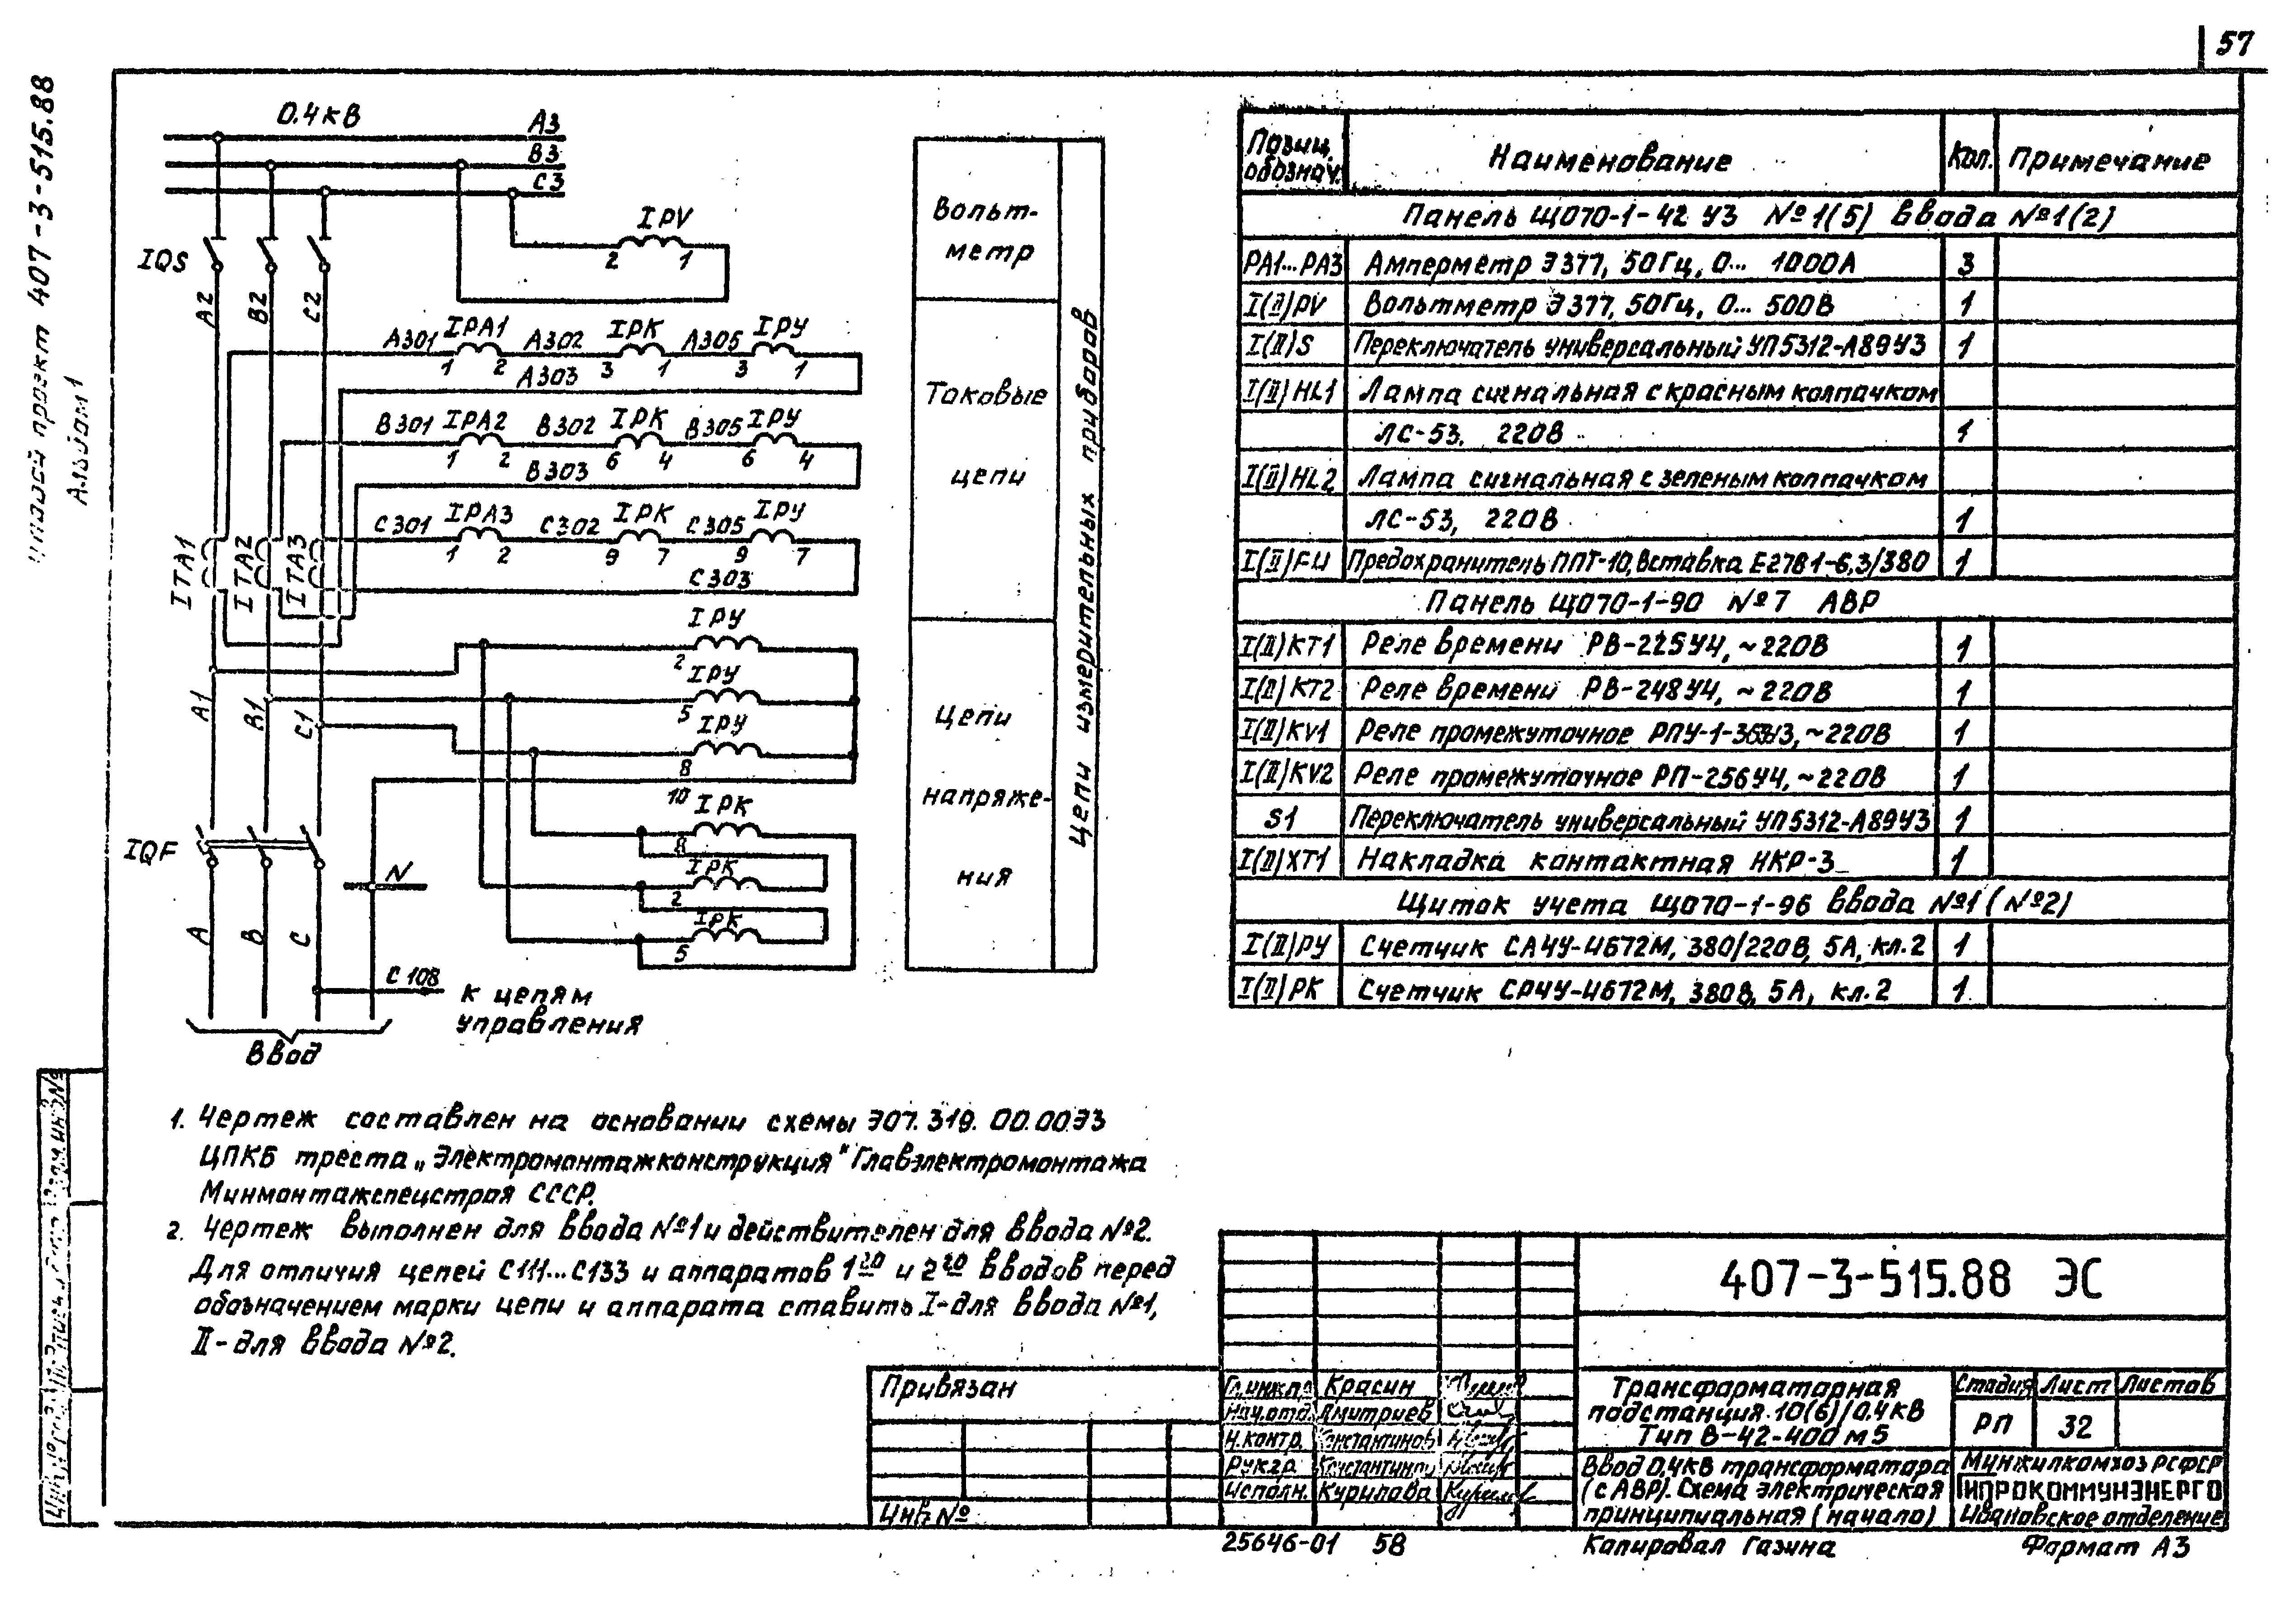 57
407-3-515.88
Альбом 1
0.4кВ
А3
В3
С3
IPV
2 1
IQS
А2
В2
С2
А301 IPA1 А302 IPK А305 IPУ
1 2 3 1 3 1
А303
В301 IPA2 В302 IPK В305 IPУ
1 2 6 4 6 4
В303
С301 IPA3 С302 IPK С305 IPУ
1 2 9 7 9 7
С303
ITA1
ITA2
ITA3
IPУ
2
IPУ
5
IPУ
8
10
IPK
8
IPK
2
IPK
5
А1
В1
С1
IQF
N
А
В
С
С108
К цепям
управления
Ввод
Вольт-
метр
Токовые
цепи
Цепи
напряже-
ния
Цепи измерительных приборов
Позиц. обознач. Наименование Кол. Примечание
Панель ЩО70-1-42 У3 №1(5) ввода №1(2)
PA1...PA3 Амперметр Э377, 50Гц, 0... 1000А 3
I(II)PV Вольтметр Э377, 50Гц, 0... 500В 1
I(II)S Переключатель универсальный УП5312-А89У3 1
I(II)HL1 Лампа сигнальная с красным колпачком
ЛС-53, 220В 1
I(II)HL2 Лампа сигнальная с зеленым колпачком
ЛС-53, 220В 1
I(II)FU Предохранитель ППТ-10, вставка Е27В1-6,3/380 1
Панель ЩО70-1-90 №7 АВР
I(II)KT1 Реле времени РВ-225У4, ~220В 1
I(II)KT2 Реле времени РВ-248У4, ~220В 1
I(II)KV1 Реле промежуточное РПУ-1-363У3, ~220В 1
I(II)KV2 Реле промежуточное РП-256У4, ~220В 1
S1 Переключатель универсальный УП5312-А89У3 1
I(II)XT1 Накладка контактная НКР-3 1
Щиток учета ЩО70-1-96 ввода №1 (№2)
I(II)РУ Счетчик СА4У-И672М, 380/220В, 5А, кл.2 1
I(II)РК Счетчик СР4У-И672М, 380В, 5А, кл.2 1
1. Чертеж составлен на основании схемы Э07.319.00.00Э3
ЦПКБ треста „Электромонтажконструкция" Главэлектромонтажа
Минмонтажспецстроя СССР.
2. Чертеж выполнен для ввода №1 и действителен для ввода №2.
Для отличия цепей С111...С133 и аппаратов 1го и 2го вводов перед
обозначением марки цепи и аппарата ставить I-для ввода №1,
II-для ввода №2.
Привязан
Инв.№
Гл.инж.пр. Красин
Нач.отд. Дмитриев
Н.контр. Константинов
Рук.гр. Константинов
Исполн. Курилова
407-3-515.88 ЭС
Трансформаторная
подстанция 10(6)/0.4кВ
Тип В-42-400м5
Стадия Лист Листов
РП 32
Ввод 0,4кВ трансформатора
(с АВР). Схема электрическая
принципиальная (начало)
Минжилкомхоз РСФСР
ГИПРОКОММУНЭНЕРГО
Ивановское отделение
25646-01 58
Копировал Газина
Формат А3